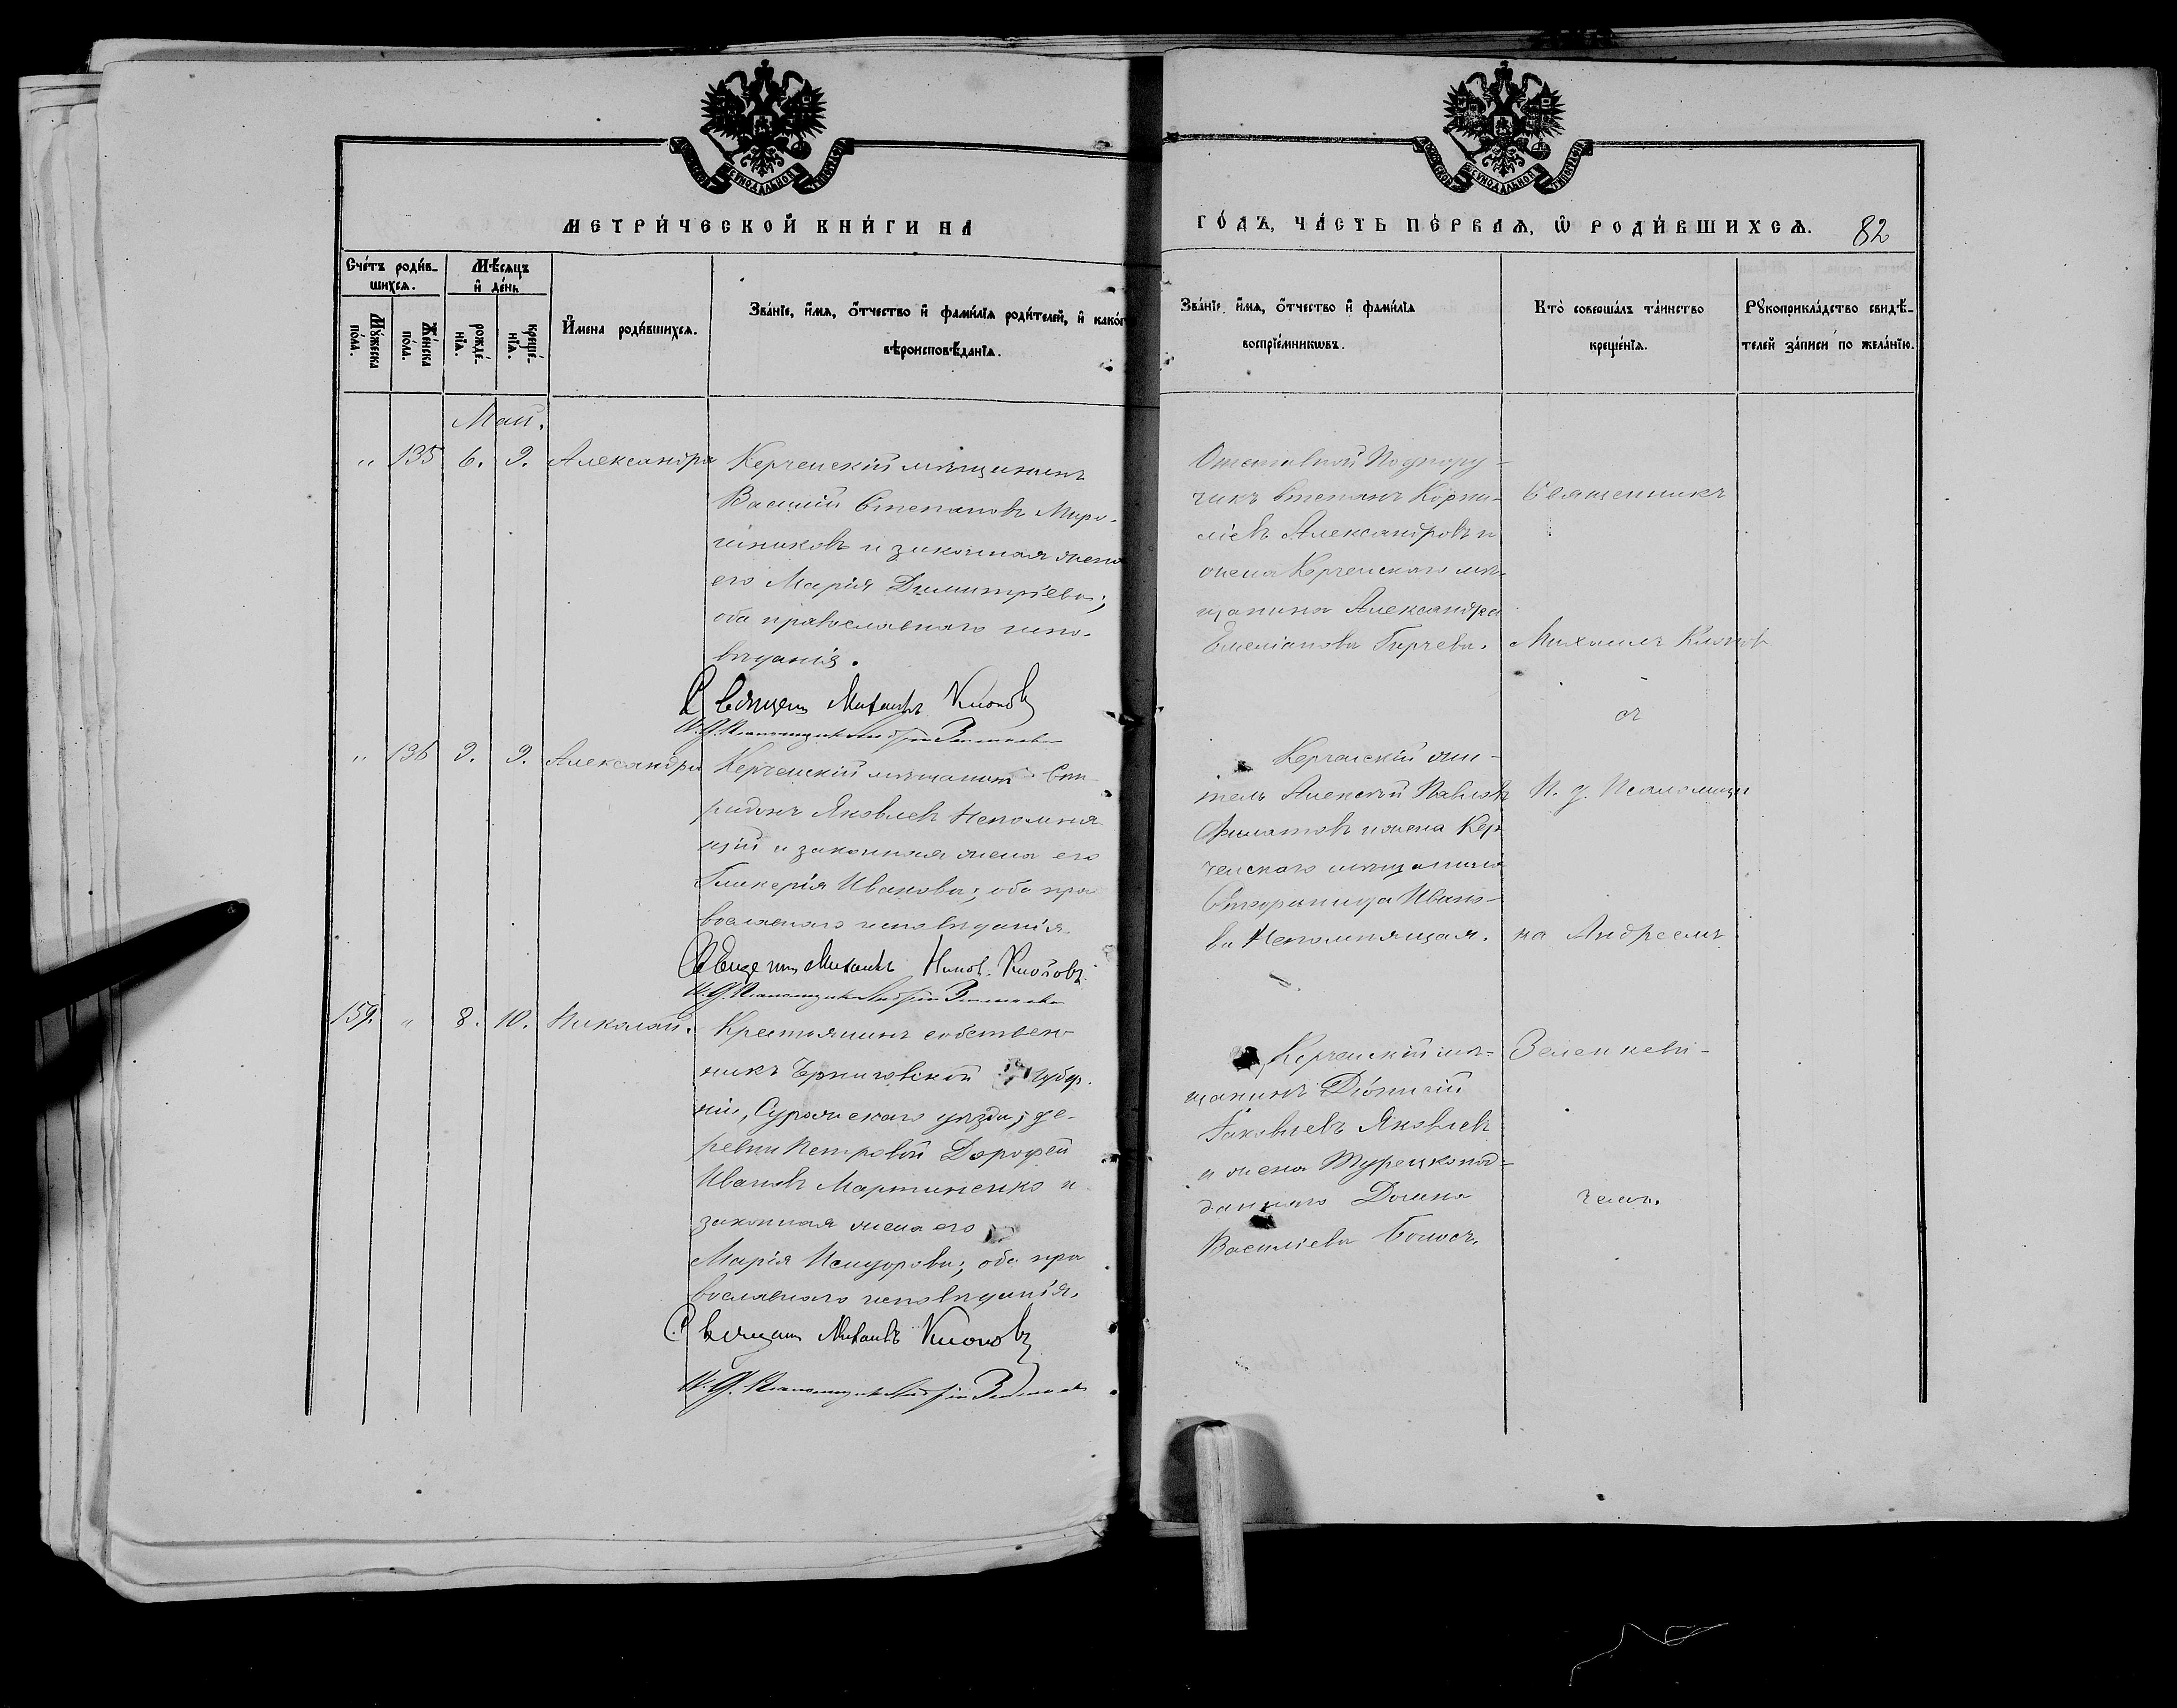 МЕТРИ́ЧЕСКОЙ КНИ́ГИ НА
ГО́ДЪ, ЧА́СТЬ ПЕ́РВАѦ, Ѡ РОДИ́ВШИХСѦ.
82
Сче́тъ роди́в-
шихсѧ.
Мꙋжеска
по́ла.
Же́нска
по́ла.
Мѣ́сѧцъ
и де́нь
рожде́-
нїѧ.
креще́-
нїѧ.
И́мена роди́вшихсѧ.
Зва́нїе, и́мѧ, о́тчество и фами́лїѧ роди́телей, и како́г
вѣроисповѣ́данїѧ.
Зва́нїе, и́мѧ, о́тчество и фами́лїѧ
воспрїе́мникѡвъ.
Кто̀ соверша́лъ та́инство
креще́нїѧ.
Рꙋкоприкла́дство свидѣ́-
телей за́писи по жела́нїю.
Май.
" 135 6. 9. Александра
Керченскій мѣщанинъ
Василій Степановъ Миро-
шниковъ и законная жена
его Марія Димитріева;
оба православнаго испо-
вѣданія.
Священ Михаилъ Клоповъ
И. Д. Псаломщика Андрей
Отставной Подпору-
чикъ Степанъ Корни-
ліевъ Александровъ и
жена Керченскаго мѣ-
щанина Александра
Емеліанова
Священникъ
Михаилъ Клоповъ
съ
" 136 9. 9. Александра
Керченскій мѣщанинъ Спи-
ридонъ Яковлевъ Непомня-
щій и законная жена его
Гликерія Иванова; оба пра
вославнаго исповѣданія.
Священ Михаилъ Клоповъ
И. Д. Псаломщика Андрей
Керченскій жи-
тель Алексѣй Павловъ
Филатовъ и жена Кер
ченскаго мѣщанина
Иано-
ва Непомнящая.
И. д. Псаломщи
ка Андреемъ
159. " 8. 10. Николай.
Крестьянинъ собствен-
никъ Черниговской Губер-
ніи, Суражскаго уѣзда, де-
ревни Петровой Дорофей
Ивановъ Мартиненко и
законная жена его
Марія Исидорова; оба пра
вославнаго исповѣданія.
Священ Михаилъ Клоповъ
И. Д. Псаломщика Андрей
Керченскій мѣ-
щанинъ Діонисій
Яковлевъ
и жена Турецкопод-
даннаго Домна
Василіева
Зеленкеви-
чемъ.